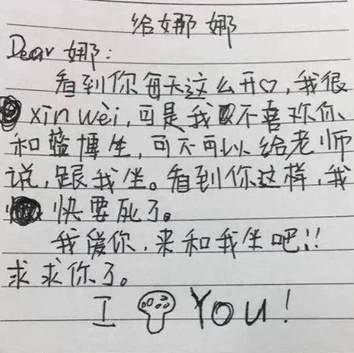 给娜娜
Dear 娜：
看到你每天这么开♡，我很
xīn wèi，可是我不喜欢你
和蓝博生，可不可以给老师
说，跟我坐。看到你这样，我
快要死了。
我爱你，来和我坐吧！！
求求你了。
I YOU！